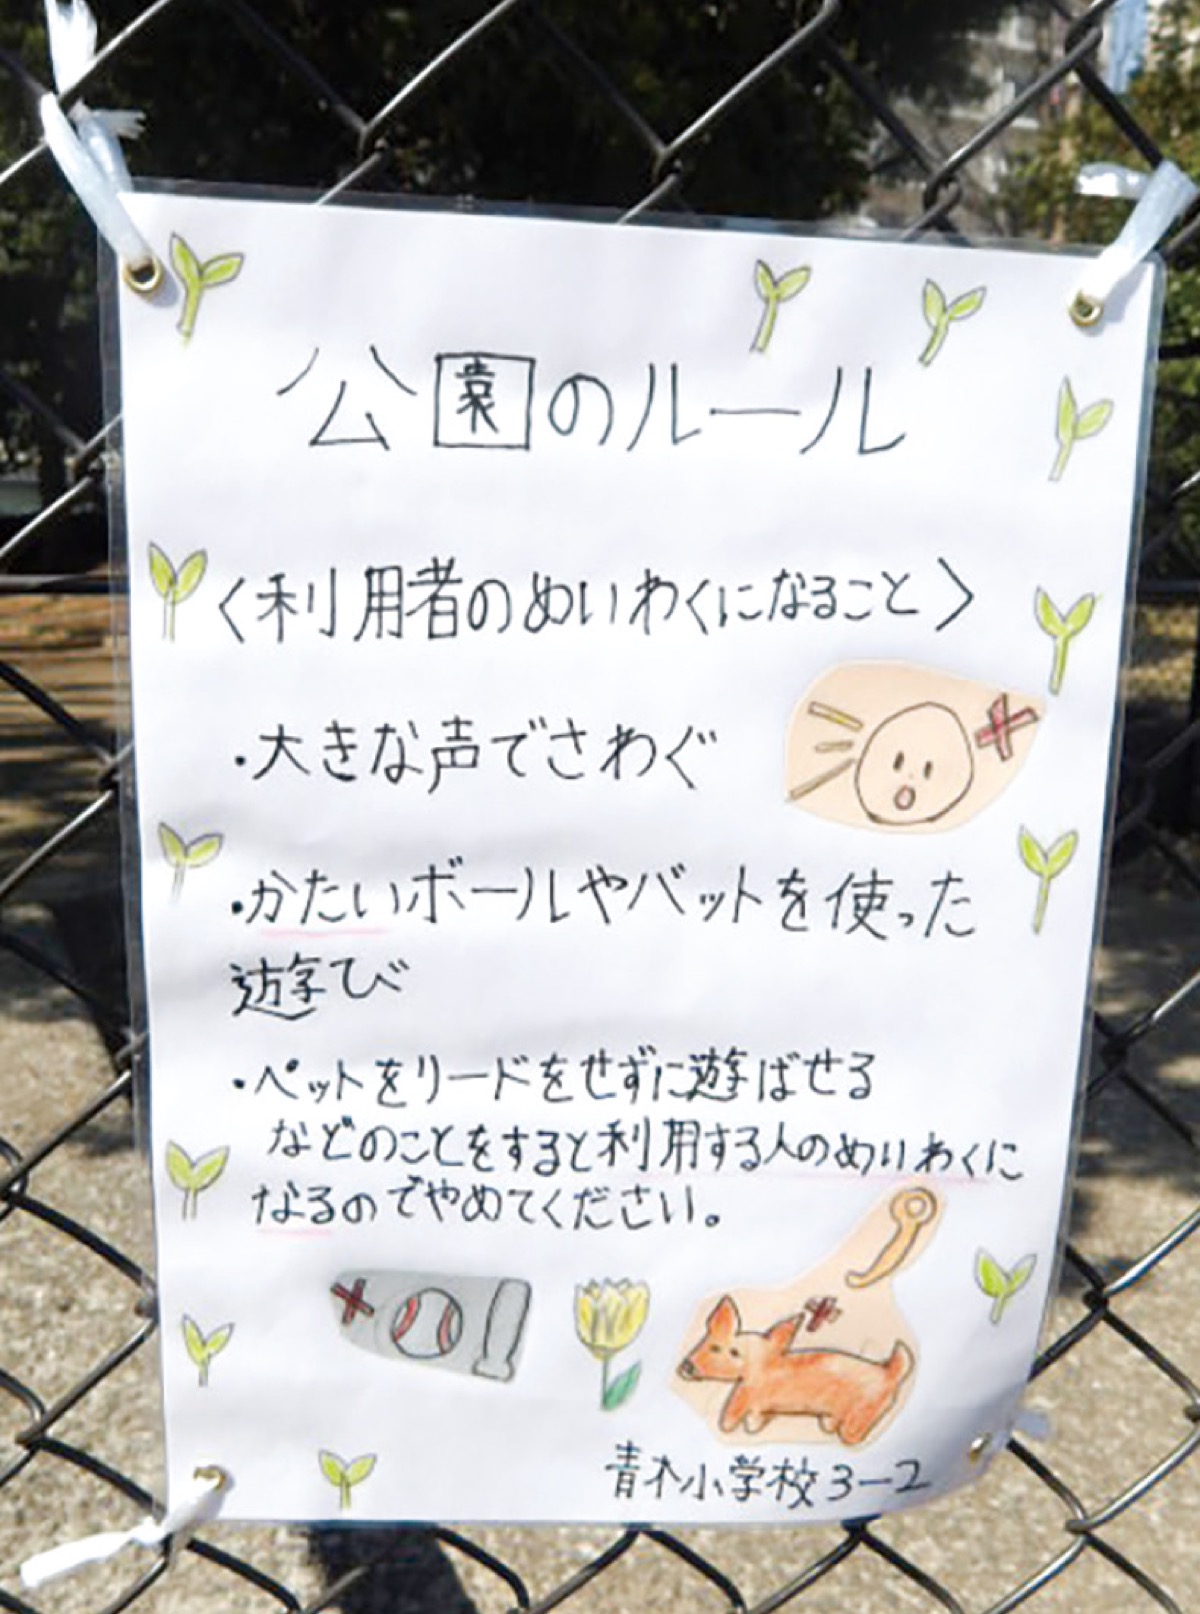 公園のルール
〈利用者のめいわくになること〉
・大きな声でさわぐ
・かたいボールやバットを使った
遊び
・ペットをリードをせずに遊ばせる
などのことをすると利用する人のめいわくに
なるのでやめてください。
青木小学校3-2